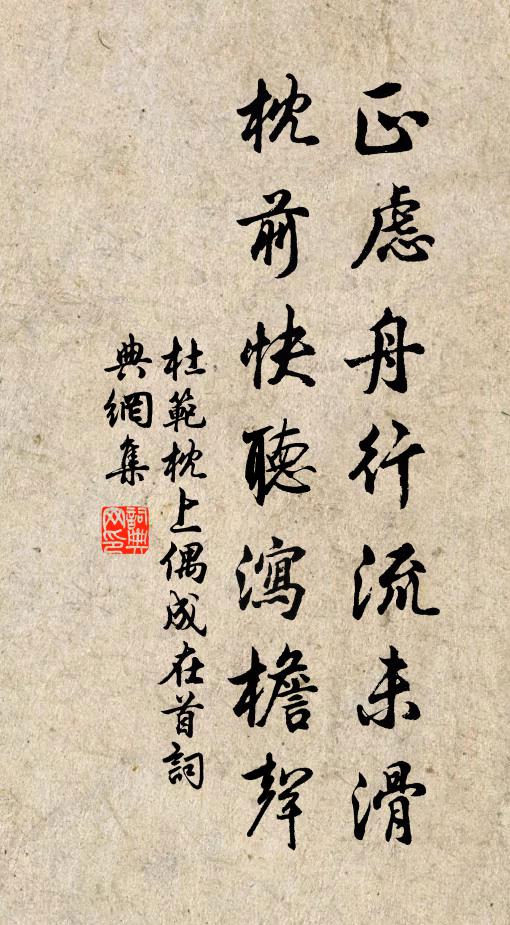 正慮舟行流未滑
枕前快聽瀉檐聲
杜範枕上偶成在首詞
典網集
詞典
网印